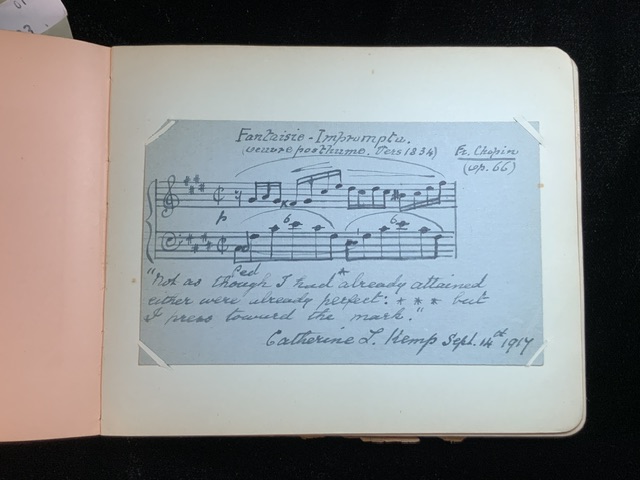 Fantaisie - Impromptu.
(oeuvre posthume. Vers 1834)
Fr. Chopin
(op. 66)
p
6
6
Ped *
"Not as though I had already attained
either were already perfect: * * * but
I press toward the mark."
Catherine L. Kemp Sept. 14th 1917